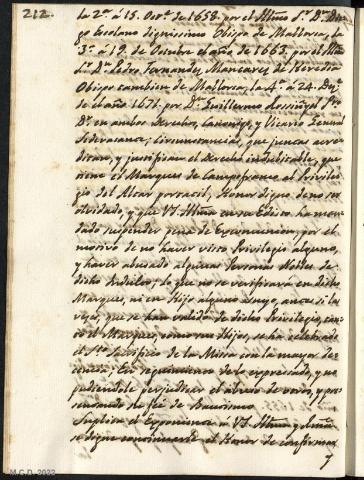 212.
la 2ª á 15. Octre. de 1658. por el Illmo. Sr. Dn. Die
go Escolano dignissimo Obispo de Mallorca, la
3ª á 19. de Octubre el año de 1663. por el Illmo
Sr. Dn. Pedro Fernandez Manjarres de Heredia
Obispo tambien de Mallorca, la 4ª á 24.
de el año 1671. por Dn. Guillermo
Dr. en ambos Derechos, Canonigo, y Vicario General
Sedevacante; circunstancias, que juntas acre
ditan, y justifican el derecho indubitable, que
tiene el Marques de Campofranco al Privile
gio del Altar portatil, Honor digno de no ser
olvidado, y que V.S. Illma. en su Edicto ha man
dado suspender pena de Excomunion, por el
motivo de no haver visto Privilegio alguno,
y haver abusado algunas Personas Nobles de
dicho Indulto, lo que no se verificará en dicho
Marques, ni en Hijo alguno suyo, antes si las
veces, que se han valido de dicho Privilegio, tan
to el Marques, como sus Hijos, se ha celebrado
el Sto. Sacrificio de la Missa con la mayor de
cencia; En seguimiento de lo expresado, y no
pudiendole perjudicar el abuso de otros, y pre
sentando la feé de Bautismo
Suplica el Exponente a V.S. Illma. y Rma.
se digne continuarle el Honor de confirmar,
y
M.C.D. 2022